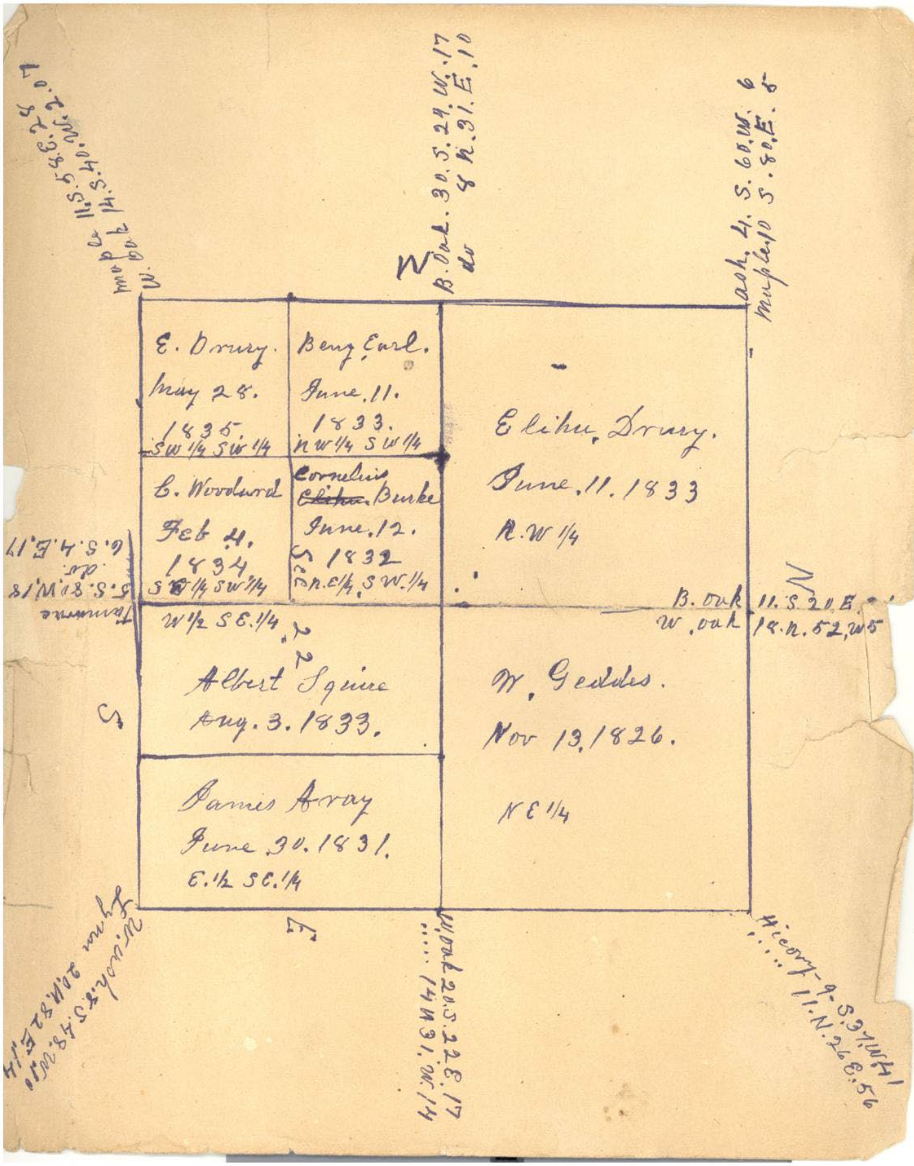 W. Oak 14.S.40.W.2.07
maple 11.S.58.E.28
B. Oak. 30.S.29.W..17
do 8 N.31.E.10
ash, 4. S. 60.W. 6
maple 10 S. 80.E. 5
W
E. Drury.
May 28.
1835.
SW 1/4 SW 1/4
Benj. Earl.
June.11.
1833.
NW 1/4 SW 1/4
Elihu, Drury.
June.11.1833
N.W 1/4
C. Woodward
Feb 4.
1834
SE 1/4 SW 1/4
Cornelius
Elihu. Burke
June.12.
1832
N.E 1/4 S W. 1/4
Sec
22
Tamarac
5.S.80.W.18
do.
6.S.4.E.17
S
N
B. oak 11.S 20.E
W. oak 18.N.52.W5
W 1/2 S E. 1/4
Albert Squire
Aug. 3. 1833.
W. Geddes.
Nov 13, 1826.
N E 1/4
James Aray
June 30. 1831.
E. 1/2 S E. 1/4
E
Lynn 20.N.82 E.14
W. Oak 20.S.22E.17
..... 14 N 31.W.14
Hicory-9-S.37.W.41
..... 11.N.26E.56